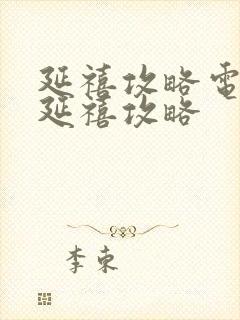 延禧攻略电
延禧攻略
李束